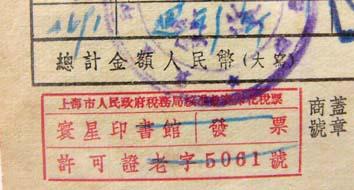 總計金額人民幣(大寫)
上海市人民政府稅務局
印花稅票
寰星印書館 發票
許可證老字5061號
商號
蓋章